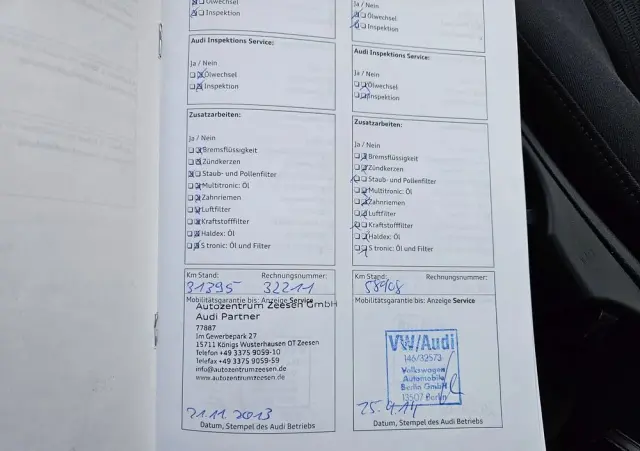 Ölwechsel
Inspektion
Audi Inspektions Service:
Ja / Nein
Ölwechsel
Inspektion
Zusatzarbeiten:
Ja / Nein
Bremsflüssigkeit
Zündkerzen
Staub- und Pollenfilter
Multitronic: Öl
Zahnriemen
Luftfilter
Kraftstofffilter
Haldex: Öl
S tronic: Öl und Filter
Km Stand: Rechnungsnummer:
31395 32211
Mobilitätsgarantie bis: Anzeige Service
Autozentrum Zeesen GmbH
Audi Partner
77887
Im Gewerbepark 27
15711 Königs Wusterhausen OT Zeesen
Telefon +49 3375 9059-10
Telefax +49 3375 9059-59
info@autozentrumzeesen.de
www.autozentrumzeesen.de
21.11.2013
Datum, Stempel des Audi Betriebs
Ölwechsel
Inspektion
Audi Inspektions Service:
Ja / Nein
Ölwechsel
Inspektion
Zusatzarbeiten:
Ja / Nein
Bremsflüssigkeit
Zündkerzen
Staub- und Pollenfilter
Multitronic: Öl
Zahnriemen
Luftfilter
Kraftstofffilter
Haldex: Öl
S tronic: Öl und Filter
Km Stand: Rechnungsnummer:
58908
Mobilitätsgarantie bis: Anzeige Service
VW/Audi
146/32573
Volkswagen
Automobile
Berlin GmbH
13507 Berlin
25.4.14
Datum, Stempel des Audi Betriebs